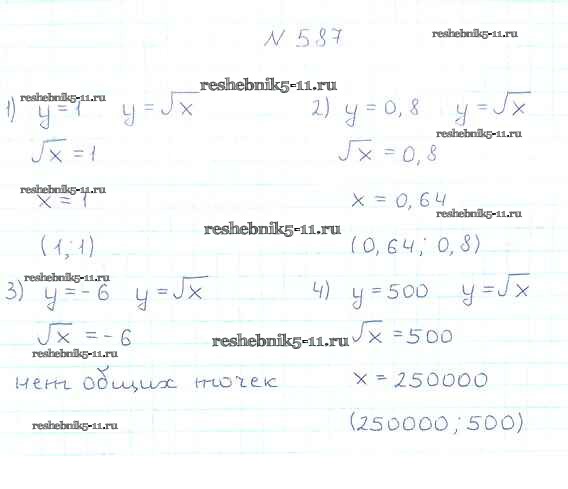 № 587
reshebnik5-11.ru
reshebnik5-11.ru
reshebnik5-11.ru
1) y = 1 y = √x
2) y = 0,8 y = √x
reshebnik5-11.ru
√x = 1
√x = 0,8
reshebnik5-11.ru
x = 1
x = 0,64
reshebnik5-11.ru
reshebnik5-11.ru
(1; 1)
(0,64; 0,8)
reshebnik5-11.ru
3) y = - 6 y = √x
4) y = 500 y = √x
√x = - 6
√x = 500
reshebnik5-11.ru
reshebnik5-11.ru
нет общих точек
x = 250000
(250000; 500)
reshebnik5-11.ru